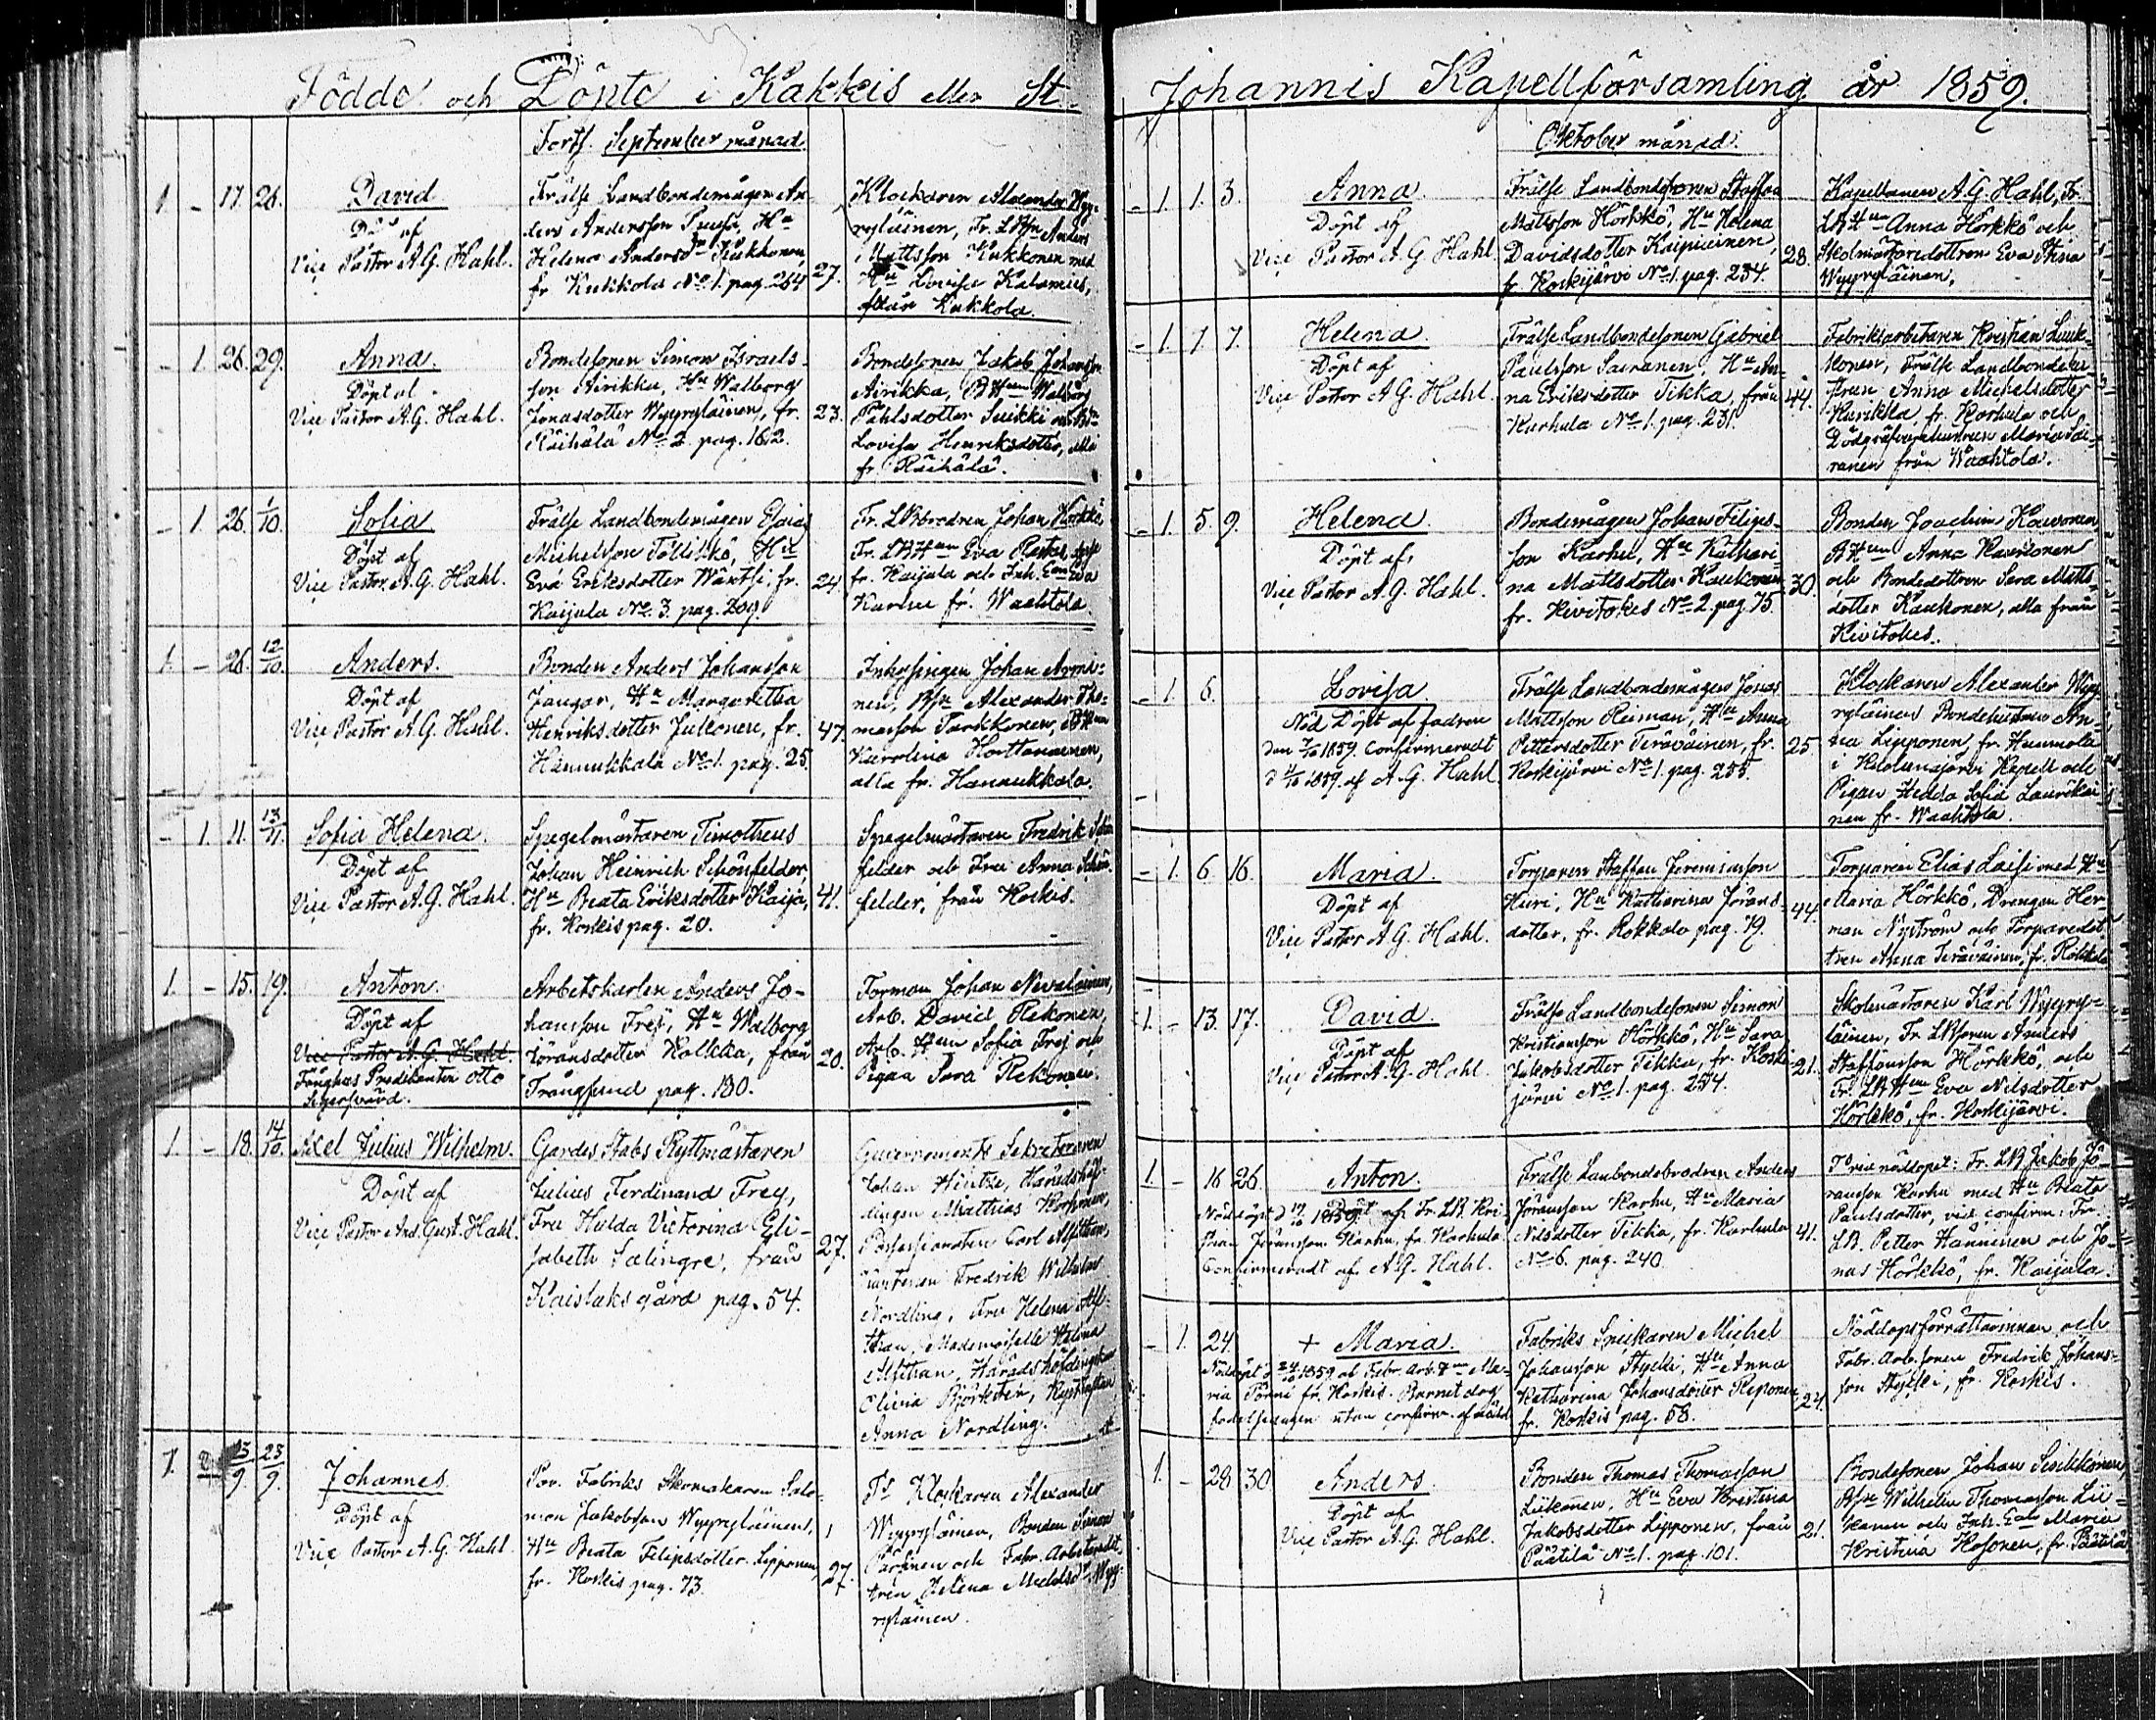 Födde och Döpte i Kakkis eller St.
Forts. September månad.
1 - 17. 26.
David
af
Vice Pastor A.G. Hahl.
Frälse Landbondemågen An-
ders Andersson Hu
Helena Andersdr Kukkonen
fr Kukkola No 1. pag. 264
27.
Klockaren Alexander Wyy-
ryläinen, Fr. Anders
Mattsson Kukkonen med
Hu Lovisa Kalamies,
Kukkola.
- 1. 26. 29.
Anna.
Döpt af
Vice Pastor A.G. Hahl.
Bondesonen Simon Israels-
son Airikka, Hu Walborg
Jonasdotter Wyyryläinen, fr.
Räihälä No 2. pag. 162.
23.
Bondesonen Jakob Johansson
Airikka, Walborg
Påhlsdotter Suikki
Lovisa Henriksdotter, alla
fr. Räihälä.
- 1. 26. 1/10.
Sofia
Döpt af
Vice Pastor A.G. Hahl.
Frälse Landbondemågen Esaias
Michelsson Töllikkö, Hu
Eva Eriksdotter Wäntsi, fr.
Kaijala No. 3. pag. 209.
24.
Fr. LBbrodren Johan Hörkkö,
Fr. LBHun Eva
fr. Kaijala och Inh. Eva
Karhu fr. Waahtola
1. - 26. 12/10.
Anders.
Döpt af
Vice Pastor A.G. Hahl.
Bonden Anders Johansson
Jungar, Hu Margaretha
Henriksdotter Julkonen, fr.
Hannukkala No 1. pag. 25.
47.
Inhysingen Johan
nen, Alexander Tho-
masson Tarkkonen,
Karolina Honttanainen,
alla fr. Hannukkala.
- 1. 11. 13/11.
Sofia Helena.
Döpt af
Vice Pastor A.G. Hahl.
Spegelmästaren Timotheus
Johan Heinrich Schönfelder,
Hu Beata Eriksdotter Kaija,
fr. Koskis pag. 20.
41.
Spegelmästaren Fredrik Schön-
felder och Fru Anna Schön-
felder, från Koskis.
1. - 15. 19.
Anton.
Döpt af
Vice Pastor A.G. Hahl.
Fånghus Predikanten Otto
Arbetskarlen Anders Jo-
hansson Frej, Hu Walborg
Göransdotter Holkka, från
Trångsund pag. 180.
20.
Forman Johan Nevalainen,
Arb. David Rekonen,
Arb. Hun Sofia Frej och
Pigan Sara Rekonen.
1. - 18. 14/10.
Axel Julius Wilhelm.
Döpt af
Vice Pastor And. Gust. Hahl.
Gardes Stabs Ryttmästaren
Julius Ferdinand Frey,
Fru Hulda Victorina Eli-
sabeth Salingre, från
Kaislaks gård pag. 54.
27.
Guvernements Sekreteraren
Johan Hintze, Häradshöf-
dingen Matthias
Possessionaten Carl Alfthan,
Fredrik Wilhelm
Nordling, Fru Helena Alf-
than, Mademoiselle Helena
Alfthan, Häradshöfdingskan
Olivia Björksten,
Anna Nordling.
7. 2. 23/9. 23/9.
Johannes.
Döpt af
Vice Pastor A.G. Hahl.
Fabriks Skomakaren Salo-
mon Jakobsson Wyyryläinen,
Hu Beata Filipsdotter Lipponen,
fr. Koskis pag. 73.
27.
Klockaren Alexander
Wyyryläinen, Bonden Simon
Pärönen och Fabr. Arbetaredot-
tren Helena Michelsdr Wyy-
ryläinen.
Johannis Kapellförsamling år 1859.
Oktober månad.
- 1. 1. 3.
Anna.
Döpt af
Vice Pastor A.G. Hahl
Frälse Landbondesonen Staffan
Mattsson Hörkkö, Hu Helena
Davidsdotter Kaipiainen,
fr. Koskijärvi No 1. pag. 234.
28.
Kapellanen A.G. Hahl, Fr.
LBHun Anna Hörkkö och
Skolmästaredottren Eva Stina
Wyyryläinen.
- 1. 1. 7.
Helena
Döpt af
Vice Pastor A.G. Hahl.
Frälse Landbondesonen Gabriel
Paulsson Sairanen, Hu An-
na Eriksdotter Tikka, från
Karhula No 1. pag. 231.
44.
Fabriksarbetaren Kristian Liuk-
konen, Frälse Landbondehu-
strun Anna Michelsdotter
Kurikka, fr. Karhula och
Dödgräfvarehustrun Maria Sai-
ranen från Waahtola.
- 1. 5. 9.
Helena.
Döpt af
Vice Pastor A.G. Hahl.
Bondemågen Johan Filips-
son Karhu, Hu Kathari-
na Mattsdotter Kaukonen
fr. Kevitokes No 2. pag. 75.
30.
Bonden Joachim Kauvonen
BHun Anna Kauvonen
och Bondedottren Sara Matts-
dotter Kaukonen, alla från
Kivitokes.
- 1. 6.
Lovisa.
Nöd Döpt af fadren
den 7/10 1859. Confirmeradt
d 11/10 1859. af A.G. Hahl
Frälse Landbondemågen Jonas
Mattsson Reiman, Hu Anna
Pettersdotter Teräväinen, fr.
Koskijärvi No 1. pag. 255.
25
Klockaren Alexander Wyy-
ryläinen Bondehustrun An-
na Lipponen, fr. Hunnola
i Kapell och
Pigan Hedda Sofia Laurikai-
nen fr. Waahtola.
- 1. 6. 16.
Maria.
Döpt af
Vice Pastor A.G. Hahl.
Torparen Staffan Jeremiasson
Huri, Hu Katharina Jörans-
dotter, fr. Rokkala pag. 19.
44.
Torparen Elias Laisi med Hu
Maria Hörkkö, Drengen Her-
man Nyström och Torparedot-
tren Anna Teräväinen, fr. Rokkala
1. - 13. 17.
David.
Döpt af
Vice Pastor A.G. Hahl.
Frälse Landbondesonen Simon
Kristiansson Hörkkö, Hu Sara
Jakobsdotter Tikka, fr. Koski-
järvi No 1. pag. 254.
21.
Skolmästaren Karl Wyyry-
läinen, Fr LBsonen Anders
Staffansson Hörkkö, och
Fr. LBHun Eva Nilsdotter
Hörkkö, fr. Koskijärvi.
1. - 16 26.
Anton.
Nöddöpt d 17/10 1859. af Fr. LB. Kri-
stian Jöransson Karhu, fr. Karhula.
Confirmeradt af A.G. Hahl.
Frälse Lanbondebrodren Anders
Jöransson Karhu, Hu Maria
Nilsdotter Tikka, fr. Karhula
No 6. pag. 240.
41.
vid nöddopet: Fr. LB Jakob Jö-
ransson Karhu med Hu Beata
Paulsdotter, vid confirm: Fr.
LB. Petter Hänninen och Jo-
nas Hörkkö, fr. Kaijala.
- 1. 24.
+ Maria.
Nöddöpt d 24/10 1859 af Fabr. Arb. Hun Ma-
ria fr. Koskis. Barnet dog
födelsedagen utan confirm. af
Fabriks Michel
Johansson Hyelli, Hu Anna
Katharina Johansdotter Reponen
fr. Koskis pag. 58.
24.
Nöddopsförrättarinnan och
Fabr. Arb. sonen Fredrik Johans-
son fr. Koskis.
1. - 28 30
Anders.
Döpt af
Vice Pastor A.G. Hahl.
Bonden Thomas Thomasson
Liikanen, Hu Eva Kristina
Jakobsdotter Lipponen, från
Päätilä No 1. pag. 101.
21.
Bondesonen Johan Sinkkonen,
Wilhelm Thomasson Lii-
kanen och Inh. Maria
Kristina Hosonen, fr. Päätilä